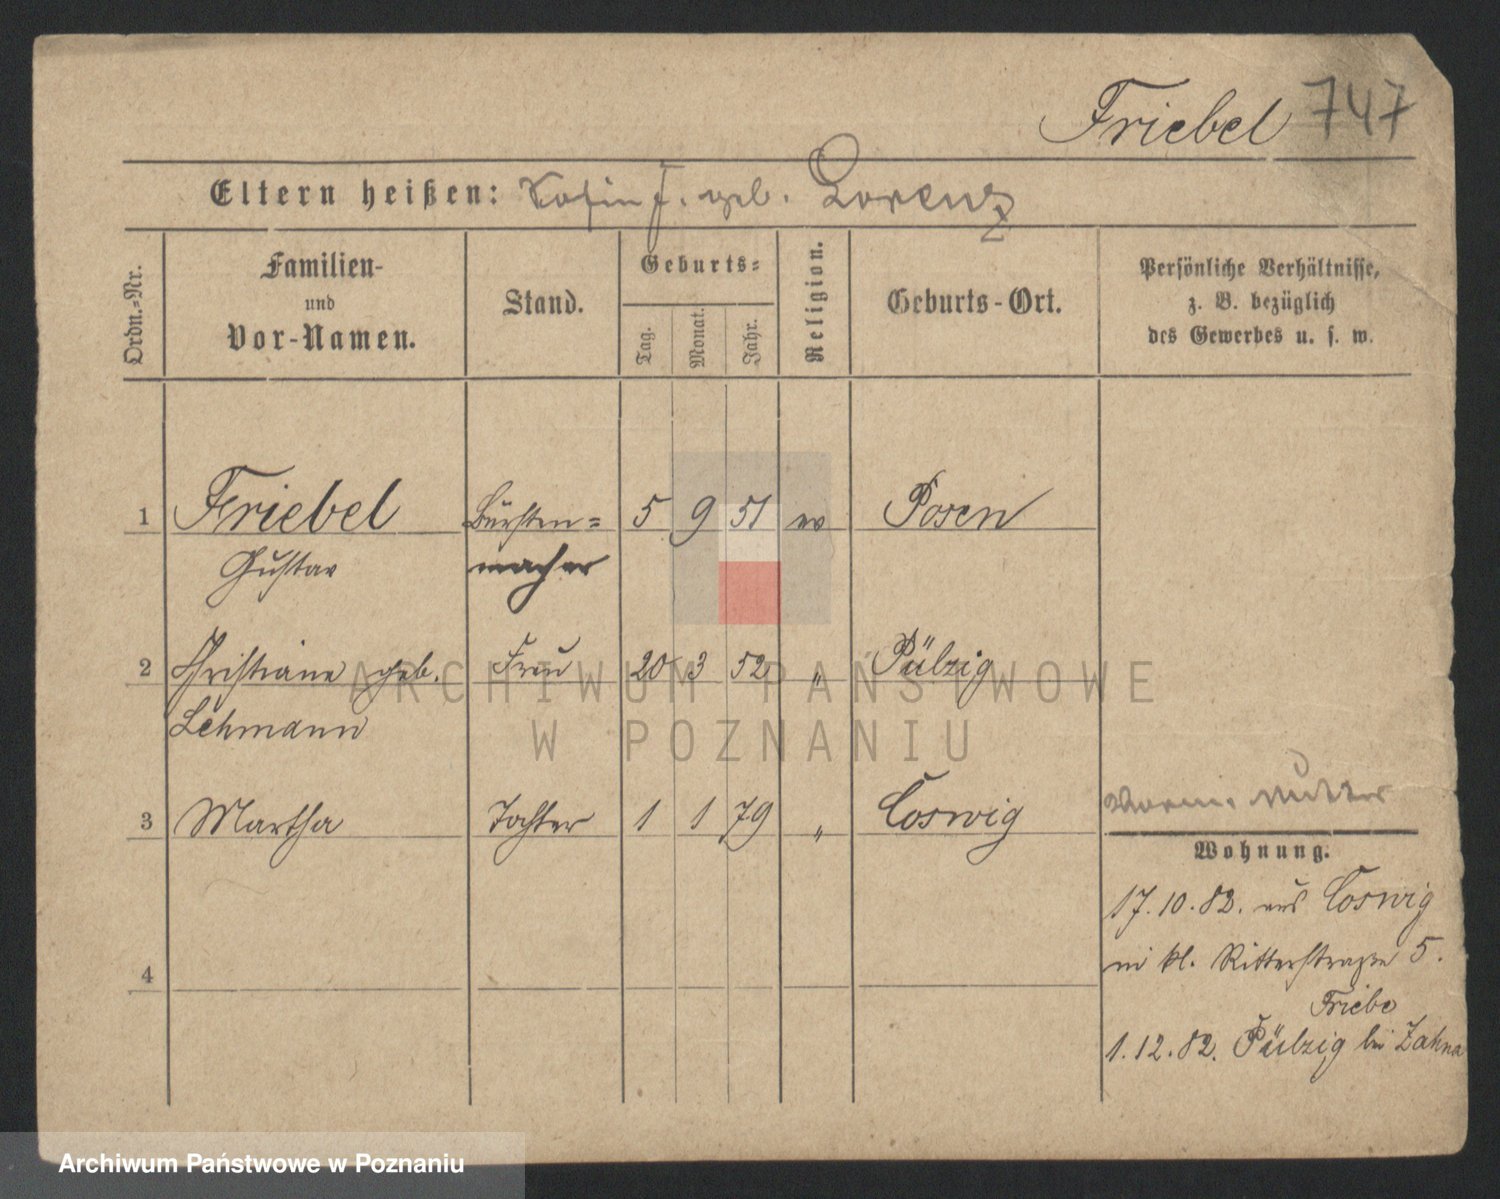 Friebel 747
Eltern heißen: F. geb. Lorenz
Ordn.-Nr.
Familien-
und
Vor-Namen.
Stand.
Geburts-
Tag.
Monat.
Jahr.
Religion.
Geburts-Ort.
Persönliche Verhältnisse,
z. B. bezüglich
des Gewerbes u. s. w.
1 Friebel Bürsten= 5 9 51 ev Posen
Gustav macher
2 Christiane geb. Frau 20 3 52 " Pülzig
Lehmann
3 Martha Tochter 1 1 79 " Coswig
Mutter
Wohnung.
17.10.82. aus Coswig
in kl. Ritterstraße 5.
Friebe
4
1.12.82. Pülzig bei Zahna
ARCHIWUM PAŃSTWOWE
W POZNANIU
Archiwum Państwowe w Poznaniu